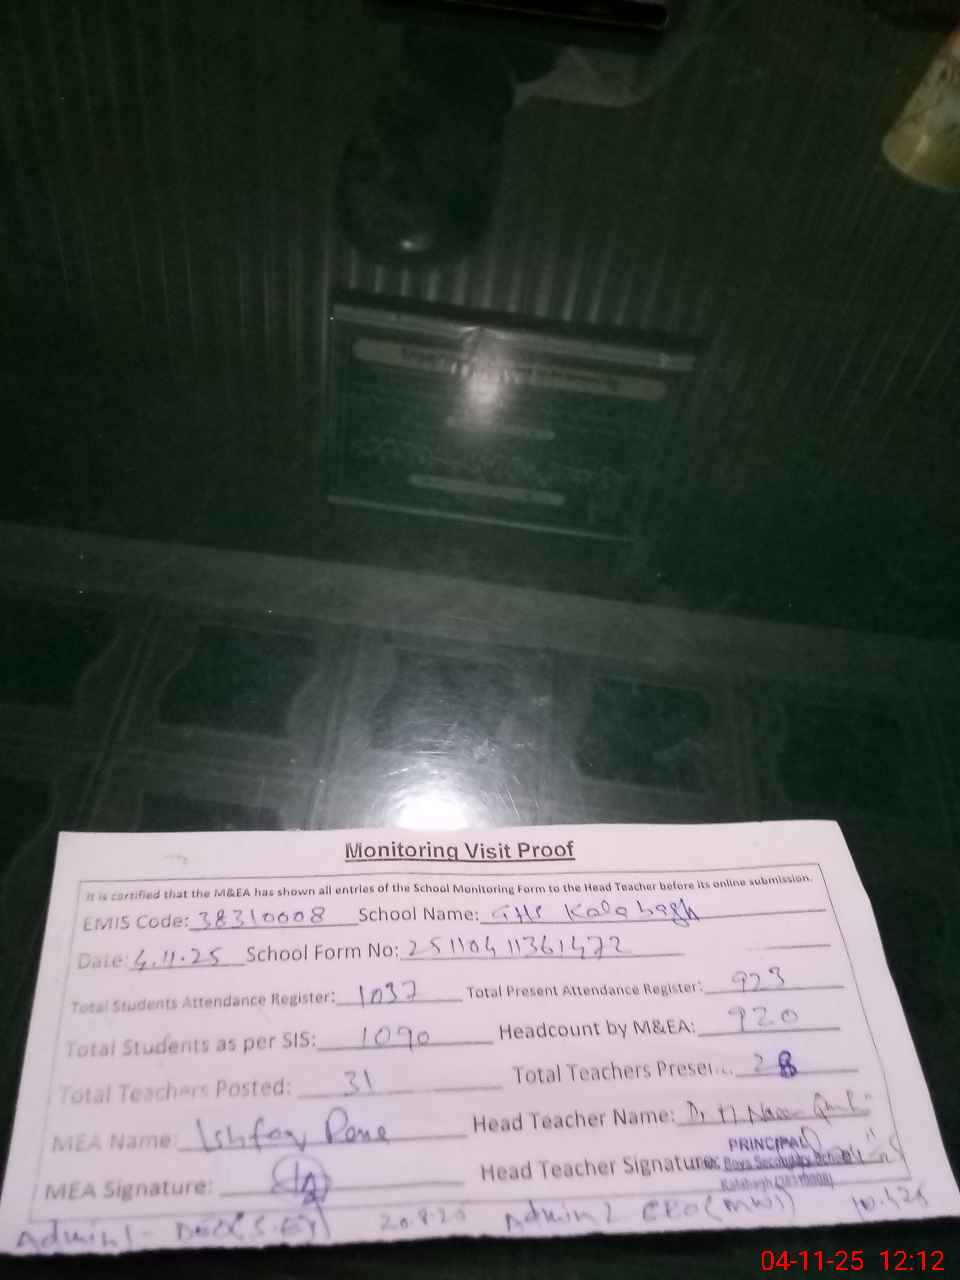 Monitoring Visit Proof
It is certified that the M&EA has shown all entries of the School Monitoring Form to the Head Teacher before its online submission.
EMIS Code: 38310008 School Name: GHS Kalabagh
Date: 4.11.25 School Form No: 25110411361472
Total Students Attendance Register: 1037 Total Present Attendance Register: 923
Total Students as per SIS: 1090 Headcount by M&EA: 920
Total Teachers Posted: 31 Total Teachers Presei... 28
MEA Name: Head Teacher Name: Dr
PRINCIPAL
MEA Signature: Head Teacher Signature: Boys Secondary School
Kalabagh (38310008)
Admin1- DEO(S.E) 20.8.25 Admin2 CEO(MWI)
04-11-25 12:12